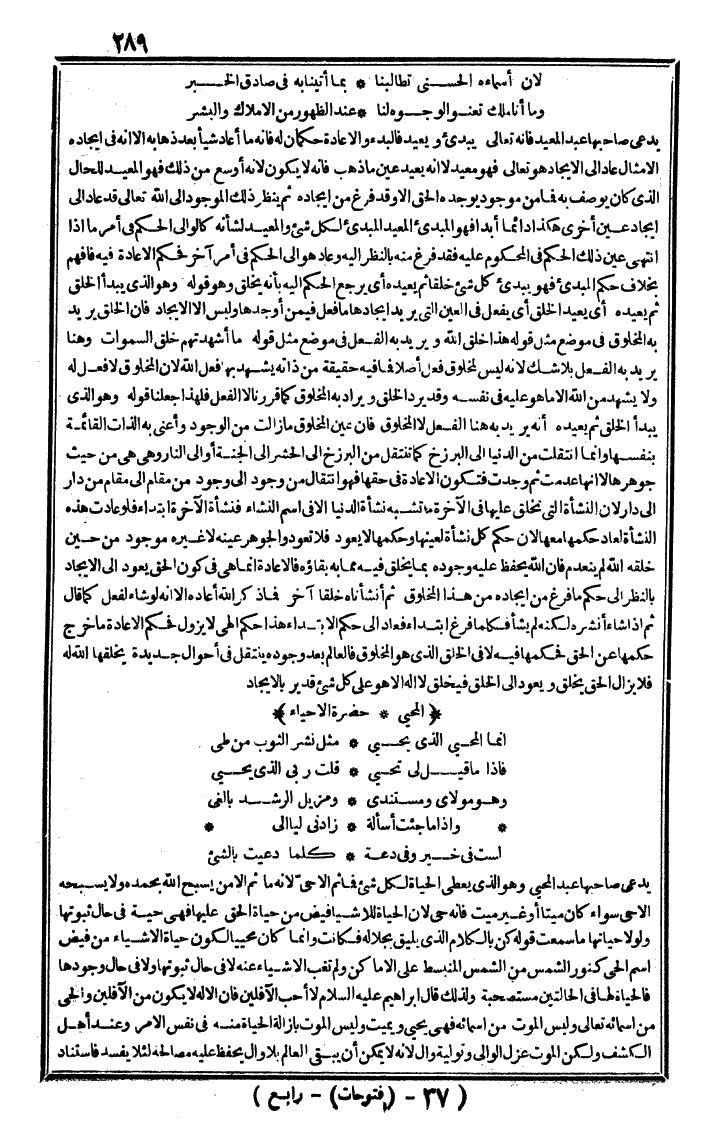 ٢٨٩
لان أسماءه الحسنى تطالبنا * بما أتينا به فى صادق الخبر
وما أنا ملك تعنو الوجوه لنا * عند الظهور من الاملاك والبشر
يدعى صاحبها عبد المعيد فانه تعالى يبدئ ويعيد فالبدء والاعادة حكمان له فانه ما أعاد شيأ بعد ذهابه الا انه فى ايجاده
الامثال عاد الى الايجاد هو تعالى فهو معيد لا انه يعيد عين ما ذهب فانه لا يكون لانه أوسع من ذلك فهو المعيد للحال
الذى كان يوصف به فما من موجود يوجده الحق الا وقد فرغ من ايجاده ثم ينظر ذلك الموجود الى الله تعالى قد عاد الى
ايجاد عين أخرى هكذا دائما أبدا فهو المبدئ المعيد المبدئ لكل شئ والمعيد لشأنه كالوالى الحكم فى أمر ما اذا
انتهى عين ذلك الحكم فى المحكوم عليه فقد فرغ منه بالنظر اليه وعاد هو الى الحكم فى أمر آخر فحكم الاعادة فيه فافهم
بخلاف حكم المبدئ فهو يبدئ كل شئ خلقا ثم يعيده أى يرجع الحكم اليه بأنه يخلق وهو قوله وهو الذى يبدأ الخلق
ثم يعيده أى يعيد الخلق أى يفعل فى العين التى يريد ايجادها ما فعل فيمن أوجدها وليس الا الايجاد فان الخلق يريد
به المخلوق فى موضع مثل قوله هذا خلق الله ويريد به الفعل فى موضع مثل قوله ما أشهدتهم خلق السموات وهنا
يريد به الفعل بلا شك لانه ليس لمخلوق فعل أصلا فافيه حقيقة من ذاته يشهد بها فعل الله لان المخلوق لا فعل له
ولا يشهد من الله الا ما هو عليه فى نفسه وقد يرد الخلق ويراد به المخلوق كما قررنا لا الفعل فلهذا جعلنا قوله وهو الذى
يبدأ الخلق ثم يعيده أنه يريد به هنا الفعل لا المخلوق فان عين المخلوق ما زالت من الوجود وأعنى به الذات القائمة
بنفسها وانما انتقلت من الدنيا الى البرزخ كما تنتقل من البرزخ الى الحشر الى الجنة أو الى النار وهى هى من حيث
جوهرها لا انها عدمت ثم وجدت فتكون الاعادة فى حقها فهو انتقال من وجود الى وجود من مقام الى مقام من دار
الى دار لان النشأة التى تخلق عليها فى الآخرة ما تشبه نشأة الدنيا الا فى اسم النشاء فنشأة الآخرة ابتداء فلو عادت هذه
النشأة لعاد حكمها معها لان حكم كل نشأة لعينها وحكمها لا يعود فلا تعود والجوهر عينه لا غيره موجود من حين
خلقه الله لم ينعدم فان الله يحفظ عليه وجوده بما يخلق فيه مما به بقاؤه فالاعادة انما هى فى كون الحق يعود الى الايجاد
بالنظر الى حكم ما فرغ من ايجاده من هذا المخلوق ثم أنشأناه خلقا آخر فذكر الله أعاده الا انه لو شاء لفعل كما قال
ثم اذا شاء أنشره لكنه لم يشأ فكما ما فرغ ابتداء فعاد الى حكم الابتداء هذا حكم الهى لا يزول فحكم الاعادة ما خرج
حكمها عن الحق فحكمها فيه لا فى الخلق الذى هو المخلوق فالعالم بعد وجوده ينتقل فى أحوال جديدة يخلقها الله له
فلا يزال الحق يخلق ويعود الى الخلق فيخلق لا اله الا هو على كل شئ قدير بالايجاد
﴿ المحيى * حضرة الاحياء ﴾
انما المحيى الذى يحيى * مثل نشر الثوب من طى
فاذا ما قيل لى تحيى * قلت ربى الذى يحيى
وهو مولاى ومستندى * ومزيل الرشد بالغى
* واذا ما جئت أسألة * زادنى ليا الى *
است فى خبر وفى دعة * كلما دعيت بالشئ
يدعى صاحبها عبد المحيى وهو الذى يعطى الحياة لكل شئ فما ثم الا حى لانه ما ثم الا من يسبح الله بحمده ولا يسبحه
الا حى سواء كان ميتا أو غير ميت فانه حى لان الحياة للاشيا فيض من حياة الحق عليها فهى حية فى حال ثبوتها
ولولا حياتها ما سمعت قوله كن بالكلام الذى يليق بجلاله فكانت وانما كان محييا لكون حياة الاشياء من فيض
اسم الحى كنور الشمس من الشمس المنبسط على الاماكن ولم تغب الاشياء عنه لا فى حال ثبوتها ولا فى حال وجودها
فالحياة لها فى الحالتين مستصحبة ولذلك قال ابراهيم عليه السلام لا أحب الآفلين فان الاله لا يكون من الآفلين والحى
من اسمائه تعالى وليس الموت من اسمائه فهى يحيى ويميت وليس الموت بازالة الحياة منه فى نفس الامر وعند أهل
الكشف ولكن الموت عزل الوالى وتولية وال لانه لا يمكن أن يبقى العالم بلا وال يحفظ عليه مصالحه لئلا يفسد فاستناد
( ٣٧ - (فتوحات) - رابع )